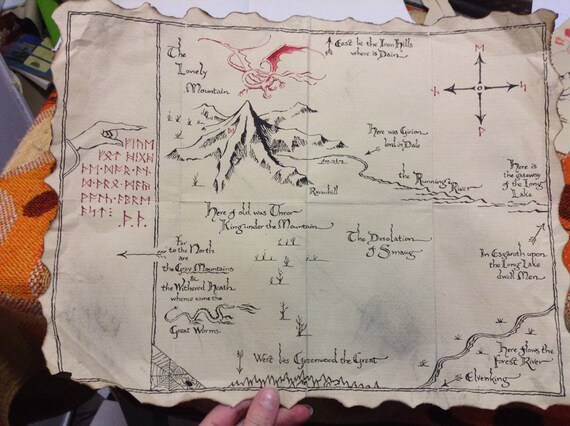 The
Lonely
Mountain
East lie the Iron Hills
where is Dain
Here was Girion
lord in Dale
the Running River
Here is
the gateway
of the Long
Lake
Here of old was Thror
King under the Mountain
The Desolation
of Smaug
Far
to the North
are
the Grey Mountains
&
the Withered Heath
whence came the
Great Worms.
In Esgaroth upon
the Long Lake
dwell Men
West lies Greenwood the Great
Here flows the
Forest River
Elvenking